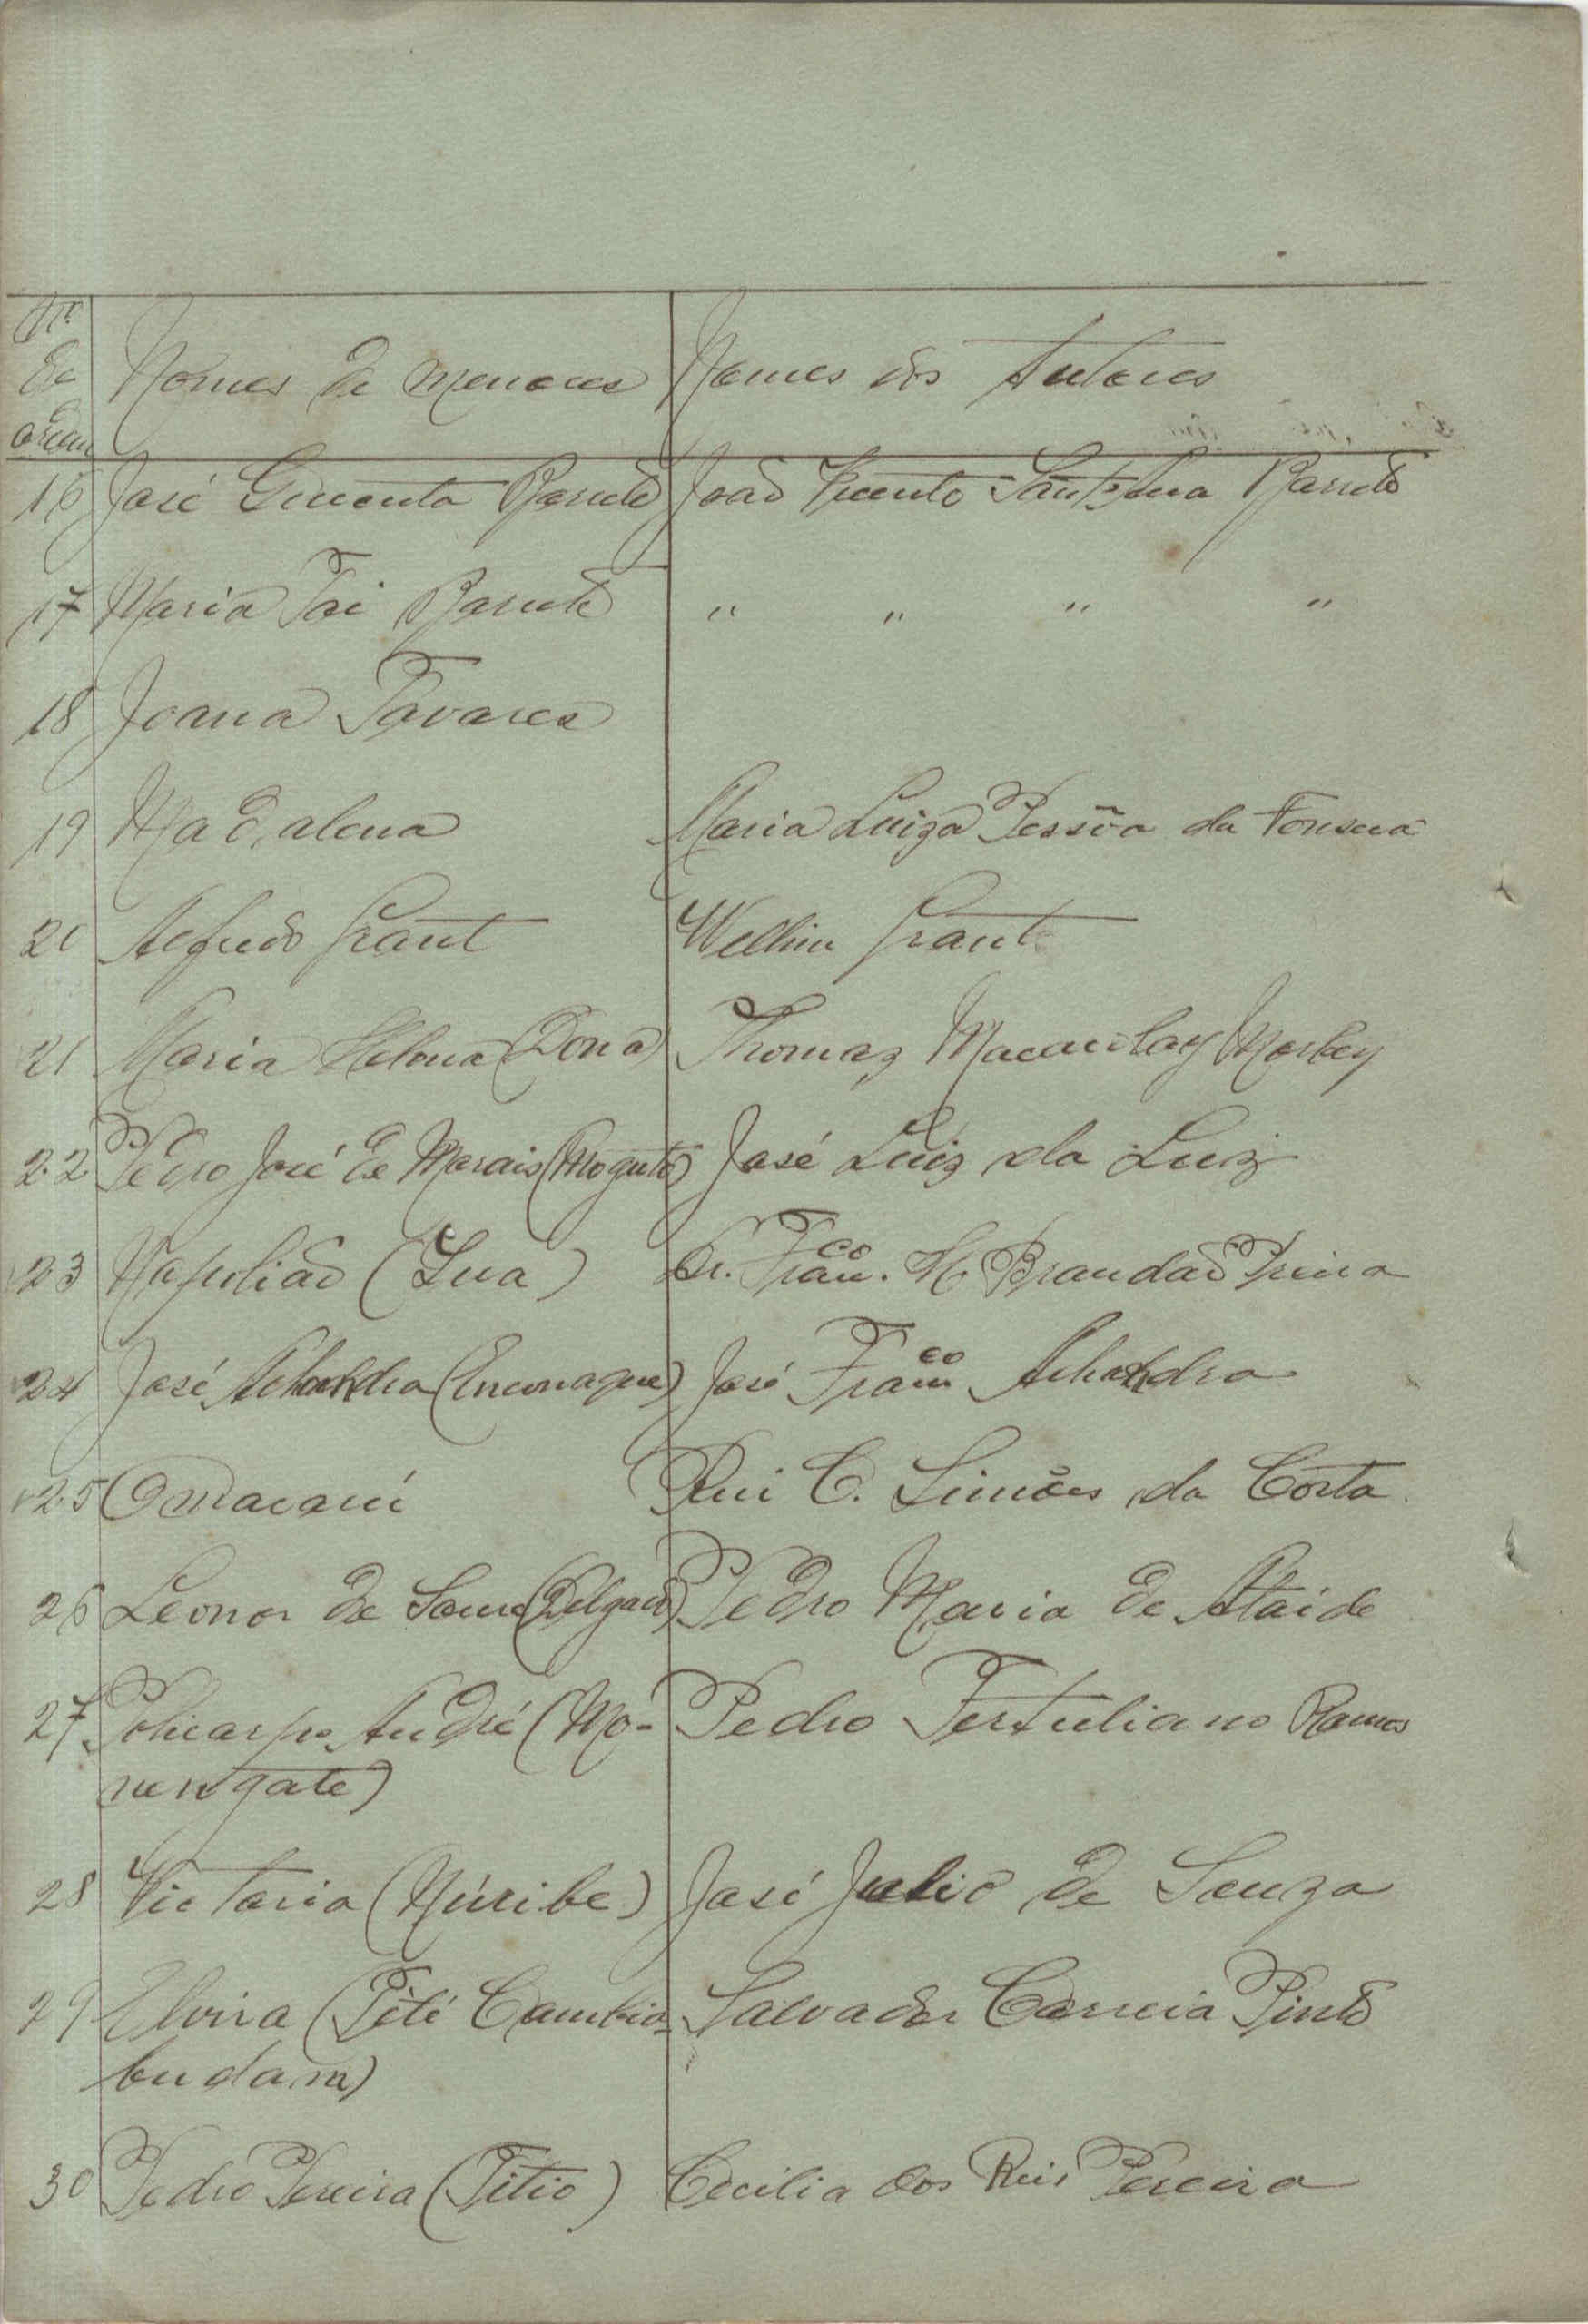 Nº
de
ordem
Nomes de menores Nomes dos Tutores
16 José Barreto João Vicente Sant'Anna Barreto
17 Maria Tai Barreto " " " "
18 Joana Tavares
19 Madalena Maria Luiza Pessõa da Fonseca
20 Alfredo Grant Wellim Grant
21 Maria Helena (Dona) Thomaz Macaulay Morbey
22 Pedro José de Morais (Moguto) José Luiz da Luiz
23 Napolião (Lua) Dr. Franco. H Brandão
24 José (Enconaque) José Franco
25 Rui C. Simões da Costa.
26 Leonor de Sousa (Delgado) Pedro Maria de Ataide
27 Policarpo André (Mo- Pedro Tertuliano Ramos
nengate)
28 Victoria (Núribe) José Julio de Souza
29 Elvira (Pité Cambia- Salvador Correia Pinto
budama)
30 Pedro Pereira (Titio) Cecilia dos Reis Pereira